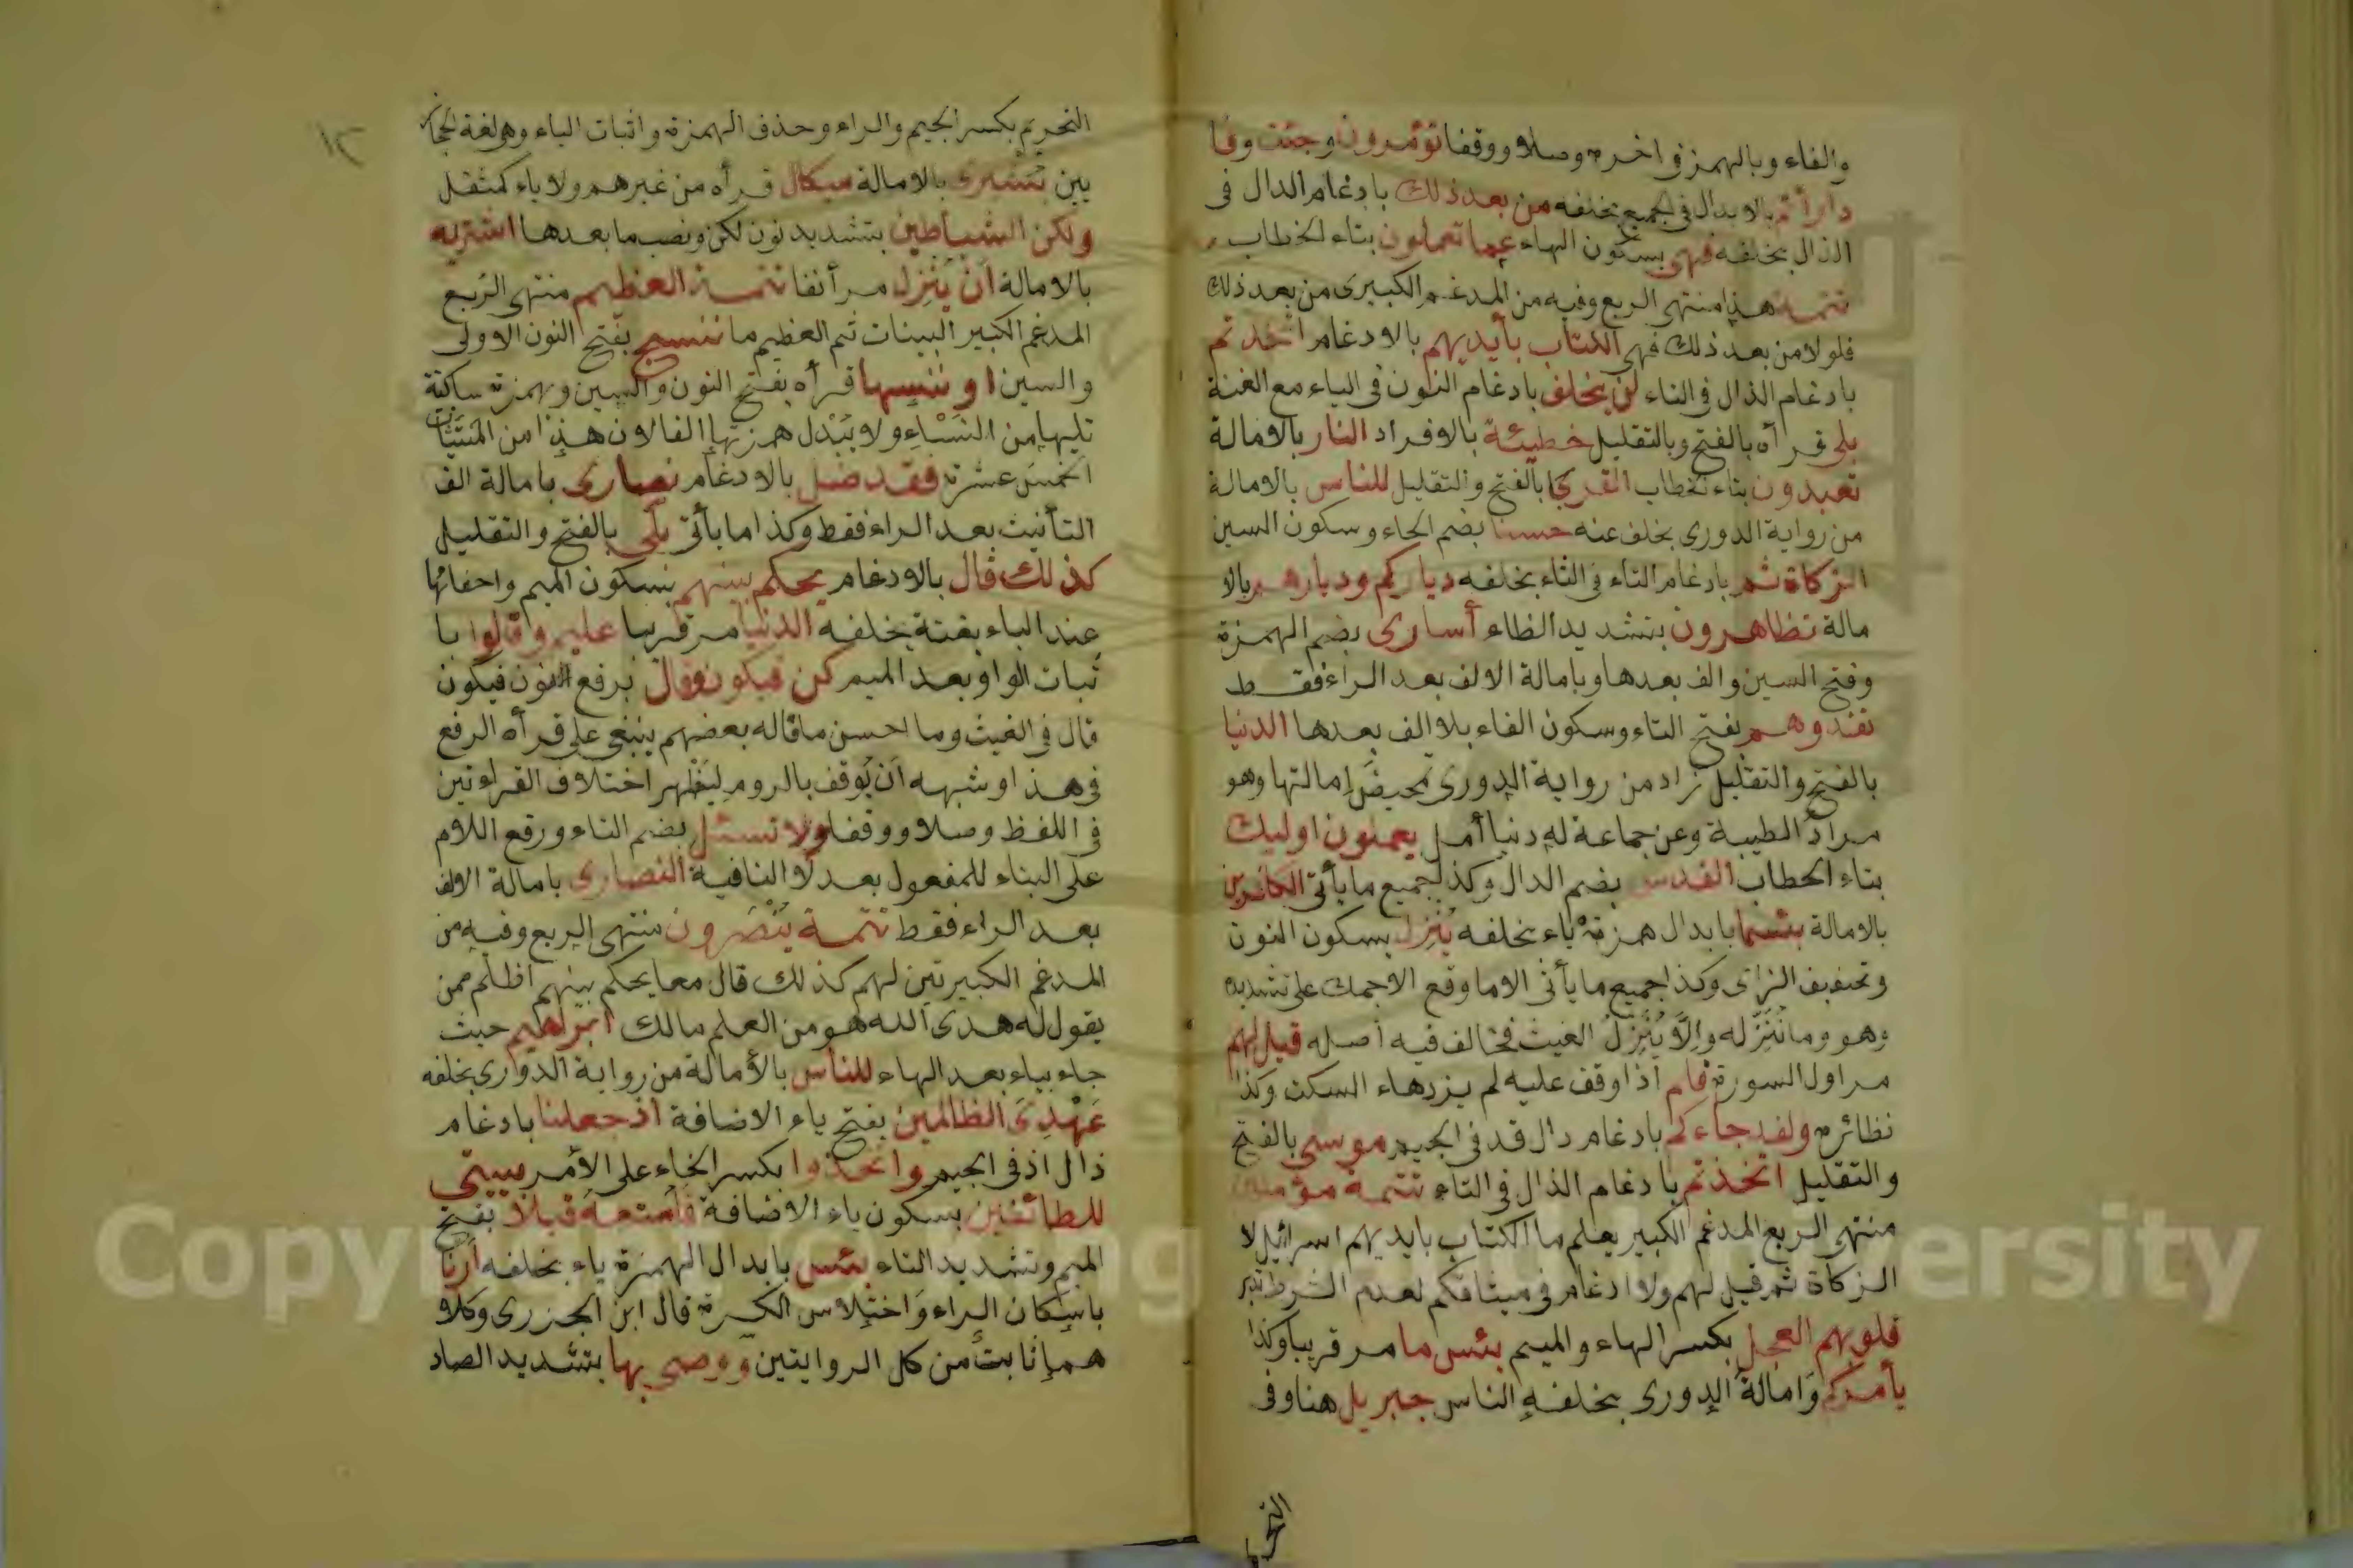 والفاء وبالهمز في اخره وصلا ووقفا تؤمرون وجئت وفا
دارأتم بالابدال في الجميع بخلفه من بعد ذلك بادغام الدال في
الذال بخلفه فهي بسكون الهاء عما تعملون بتاء الخطاب
تتمة هذا منتهى الربع وفيه من المدغم الكبيرى من بعد ذلك
فلولا من بعد ذلك فهي الكتاب بأيديهم بالادغام اتخذتم
بادغام الذال في التاء لن يخلف بادغام النون في الياء مع الغنة
بلى قرأه بالفتح وبالتقليل خطيئة بالافراد النار بالامالة
تعبدون بتاء الخطاب القربى بالفتح والتقليل للناس بالامالة
من رواية الدورى بخلف عنه حسنا بضم الحاء وسكون السين
الزكاة ثم بادغام التاء في الثاء بخلفه دياركم وديارهم بالا
مالة تظاهرون بتشديد الظاء أسارى بضم الهمزة
وفتح السين والف بعدها وبامالة الالف بعد الراء فقط
تفدوهم بفتح التاء وسكون الفاء بلا الف بعدها الدنيا
بالفتح والتقليل زاد من رواية الدورى تمحيض امالتها وهو
مراد الطيبة وعن جماعة له دنيا أمل يعملون اوليك
بتاء الخطاب القدس بضم الدال وكذا جميع ما يأتى الكافرين
بالامالة بئسما بابدال همزة ياء بخلفه ينزل بسكون النون
وتخفيف الزاى وكذا جميع ما يأتى الا ما وقع الاجماع على تشديده
وهو وما ننزله والا ينزل الغيث فخالف فيه أصله قيل لهم
مر اول السورة فلم اذا وقف عليه لم يزد هاء السكت وكذا
نظائره ولقد جاءكم بادغام دال قد في الجيم موسى بالفتح
والتقليل اتخذتم بادغام الذال في التاء تتمة مؤمنين
منتهى الربع المدغم الكبير يعلم ما الكتاب بايديهم اسرائيل لا
الزكاة ثم قيل لهم ولا ادغام في ميثاقكم لعدم الشرط
قلوبهم العجل بكسر الهاء والميم بئس ما مر قريبا وكذا
يأمركم وامالة الدورى بخلفه الناس جبريل هنا وفي
التحريم
١٢
التحريم بكسر الجيم والراء وحذف الهمزة واثبات الياء وهي لغة الحجاز
يين بشرى بالامالة ميكال قرأه من غير همز ولا ياء كمثقل
ولكن الشياطين بتشديد نون لكن ونصب ما بعدها اشتريه
بالامالة ان ينزل مر أنفا تتمة العظيم منتهى الربع
المدغم الكبير البينات ثم العظيم ما ننسخ بفتح النون الاولى
والسين او ننسها قرأه بفتح النون والسين وهمزة ساكنة
تليها من النساء ولا يبدل همزتها الفا لان هذا من المستثنات
الخمس عشرة فقد ضل بالادغام نصارى بامالة الف
التأنيث بعد الراء فقط وكذا ما يأتى بلى بالفتح والتقليل
كذلك قال بالادغام يحكم بينهم بسكون الميم واخفائها
عند الباء بغنة بخلفه الدنيا مر قريبا عليم وقالوا با
ثبات الواو بعد الميم كن فيكون وقال برفع النون فيكون
قال في الغيث وما احسن ما قاله بعضهم ينبغى على قرأه الرفع
في هذا وشبهه أن يوقف بالروم ليظهر اختلاف القراءتين
في اللفظ وصلا ووقفا ولا تسئل بضم التاء ورفع اللام
على البناء للمفعول بعد لا النافية النصارى بامالة الالف
بعد الراء فقط تتمة ينصرون منتهى الربع وفيه من
المدغم الكبير تبين لهم كذلك قال معا يحكم بينهم اظلم ممن
يقول له هدى الله هو من العلم مالك ابراهيم حيث
جاء بياء بعد الهاء للناس بالأمالة من رواية الدورى بخلفه
عهدى الظالمين بفتح ياء الاضافة اذ جعلنا بادغام
ذال اذ في الجيم واتخذوا بكسر الخاء على الأمر بيتي
للطائفين بسكون ياء الاضافة فأمتعه قليلا بفتح
الميم وتشديد التاء بئس بابدال الهمزة ياء بخلفه أرنا
باسكان الراء واختلاس الكسرة قال ابن الجزرى وكلا
هما ثابت من كل الروايتين ووصى بها بتشديد الصاد